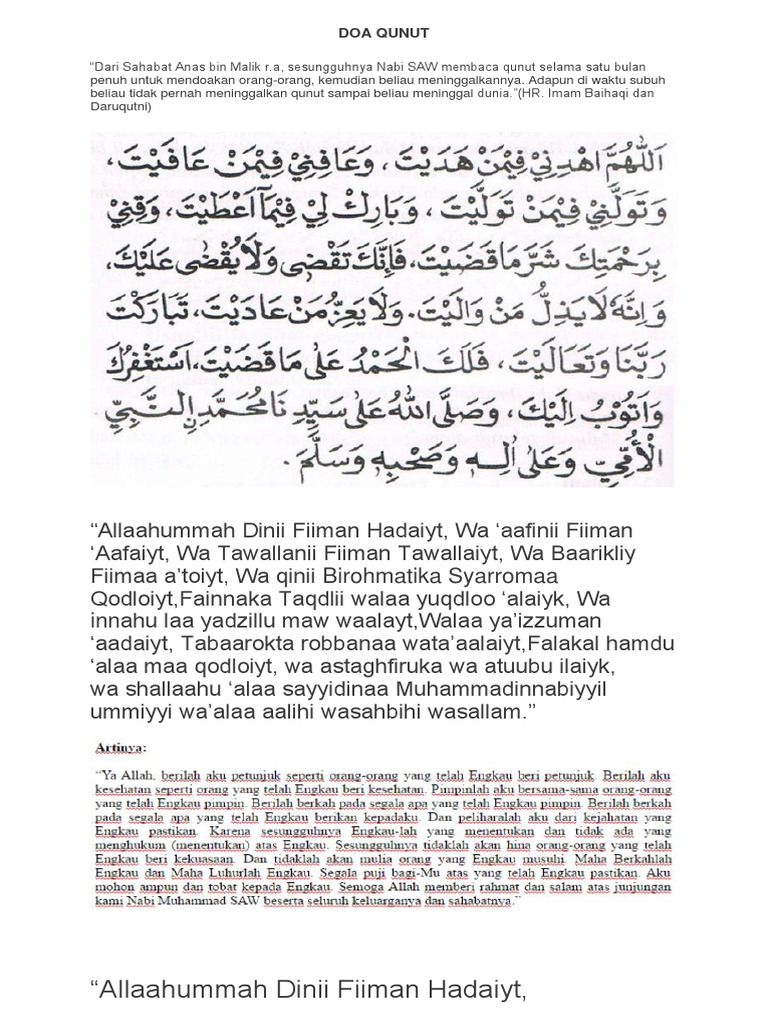 DOA QUNUT
“Dari Sahabat Anas bin Malik r.a, sesungguhnya Nabi SAW membaca qunut selama satu bulan
penuh untuk mendoakan orang-orang, kemudian beliau meninggalkannya. Adapun di waktu subuh
beliau tidak pernah meninggalkan qunut sampai beliau meninggal dunia.”(HR. Imam Baihaqi dan
Daruqutni)
اَللّٰهُمَّ اهْدِنِيْ فِيْمَنْ هَدَيْتَ ، وَعَافِنِيْ فِيْمَنْ عَافَيْتَ ،
وَتَوَلَّنِيْ فِيْمَنْ تَوَلَّيْتَ ، وَبَارِكْ لِيْ فِيْمَآ اَعْطَيْتَ ، وَقِنِيْ
بِرَحْمَتِكَ شَرَّ مَا قَضَيْتَ، فَاِنَّكَ تَقْضِى وَلَا يُقْضٰى عَلَيْكَ،
وَاِنَّهٗ لَا يَذِلُّ مَنْ وَالَيْتَ. وَلَا يَعِزُّ مَنْ عَادَيْتَ، تَبَارَكْتَ
رَبَّنَا وَتَعَالَيْتَ ، فَلَكَ الْحَمْدُ عَلٰى مَا قَضَيْتَ، اَسْتَغْفِرُكَ
وَاَتُوْبُ اِلَيْكَ ، وَصَلَّى اللّٰهُ عَلٰى سَيِّدِنَا مُحَمَّدِ ࣙالنَّبِيِّ
الْاُمِّيِّ وَعَلٰى اٰلِهٖ وَصَحْبِهٖ وَسَلَّمَ .
“Allaahummah Dinii Fiiman Hadaiyt, Wa ‘aafinii Fiiman
‘Aafaiyt, Wa Tawallanii Fiiman Tawallaiyt, Wa Baarikliy
Fiimaa a’toiyt, Wa qinii Birohmatika Syarromaa
Qodloiyt,Fainnaka Taqdlii walaa yuqdloo ‘alaiyk, Wa
innahu laa yadzillu maw waalayt,Walaa ya’izzuman
‘aadaiyt, Tabaarokta robbanaa wata’aalaiyt,Falakal hamdu
‘alaa maa qodloiyt, wa astaghfiruka wa atuubu ilaiyk,
wa shallaahu ‘alaa sayyidinaa Muhammadinnabiyyil
ummiyyi wa’alaa aalihi wasahbihi wasallam.”
Artinya:
“Ya Allah, berilah aku petunjuk seperti orang-orang yang telah Engkau beri petunjuk. Berilah aku
kesehatan seperti orang yang telah Engkau beri kesehatan. Pimpinlah aku bersama-sama orang-orang
yang telah Engkau pimpin. Berilah berkah pada segala apa yang telah Engkau pimpin. Berilah berkah
pada segala apa yang telah Engkau berikan kepadaku. Dan peliharalah aku dari kejahatan yang
Engkau pastikan. Karena sesungguhnya Engkau-lah yang menentukan dan tidak ada yang
menghukum (menentukan) atas Engkau. Sesungguhnya tidaklah akan hina orang-orang yang telah
Engkau beri kekuasaan. Dan tidaklah akan mulia orang yang Engkau musuhi. Maha Berkahlah
Engkau dan Maha Luhurlah Engkau. Segala puji bagi-Mu atas yang telah Engkau pastikan. Aku
mohon ampun dan tobat kepada Engkau. Semoga Allah memberi rahmat dan salam atas junjungan
kami Nabi Muhammad SAW beserta seluruh keluarganya dan sahabatnya.”
“Allaahummah Dinii Fiiman Hadaiyt,